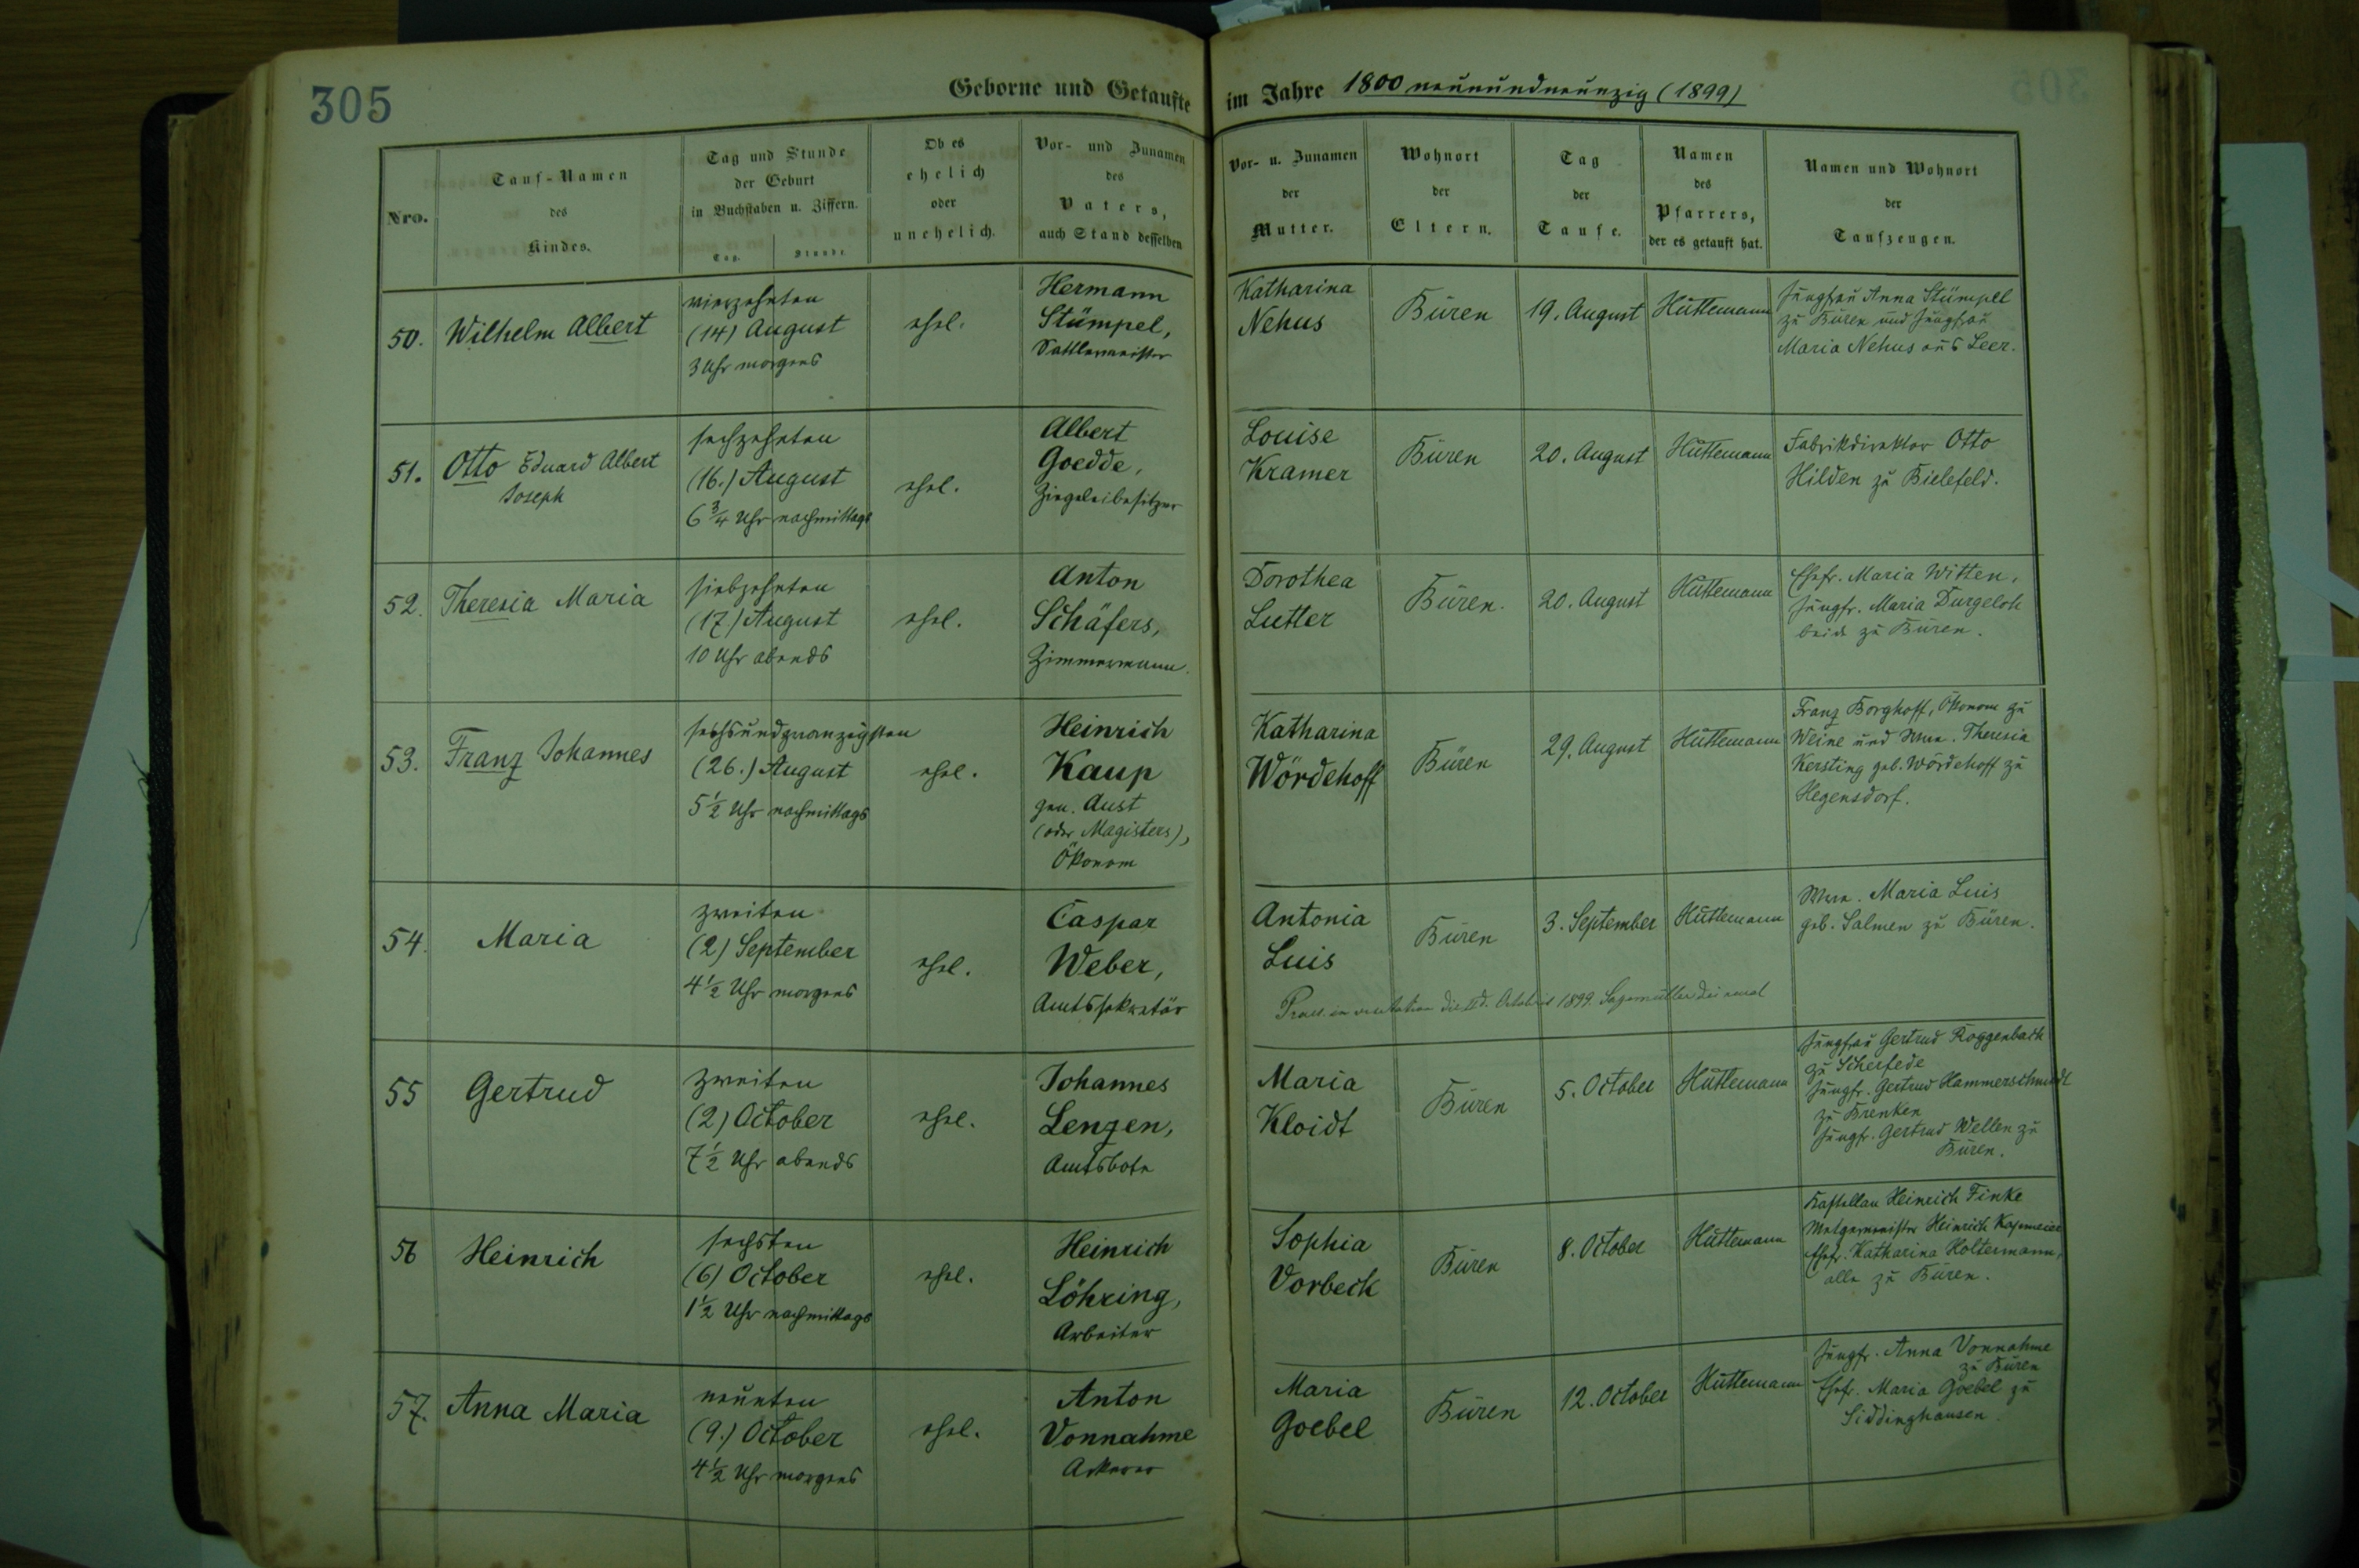 305
Geborne und Getaufte im Jahre 1800 neunundneunzig (1899)
Nro.
Tauf-Namen
des
Kindes.
Tag und Stunde
der Geburt
in Buchstaben u. Ziffern.
Tag.
Stunde
Ob es
ehelich
oder
unehelich.
Vor- und Zunamen
des
Vaters,
auch Stand desselben
Vor- u. Zunamen
der
Mutter.
Wohnort
der
Eltern.
Tag
der
Taufe.
Namen
des
Pfarrers,
der es getauft hat.
Namen und Wohnort
der
Taufzeugen.
50.
Wilhelm Albert
vierzehnten
(14) August
3 Uhr morgens
ehel.
Hermann
Stümpel,
Sattlermeister
Katharina
Nehus
Büren
19. August
Hüttemann
Jungfrau Anna Stümpel
zu Büren und Jungfrau
Maria Nehus aus Leer.
51.
Otto Eduard Albert
Joseph
sechzehnten
(16.) August
6 3/4 Uhr nachmittags
ehel.
Albert
Goedde,
Ziegeleibesitzer
Louise
Kramer
Büren
20. August
Hüttemann
Fabrikdirektor Otto
Hilden zu Bielefeld.
52.
Theresia Maria
siebzehnten
(17) August
10 Uhr abends
ehel.
Anton
Schäfers,
Zimmermann.
Dorothea
Lutter
Büren.
20. August
Hüttemann
Ehefr. Maria Witten,
Jungfr. Maria Durgeloh
beide zu Büren.
53.
Franz Johannes
sechsundzwanzigsten
(26.) August
5 1/2 Uhr nachmittags
ehel.
Heinrich
Kaup
gen. Aust
(oder Magisters),
Ökonom
Katharina
Wördehoff
Büren
29. August
Hüttemann
Franz Borghoff, Ökonom zu
Weine und Wwe. Theresia
Kersting geb. Wördehoff zu
Hegensdorf.
54.
Maria
zweiten
(2) September
4 1/2 Uhr morgens
ehel.
Caspar
Weber,
Amtssekretär
Antonia
Luis
Büren
3. September
Hüttemann
Wwe. Maria Luis
geb. Salmen zu Büren.
Octobris 1899.
55
Gertrud
zweiten
(2) October
7 1/2 Uhr abends
ehel.
Johannes
Lenzen,
Amtsbote
Maria
Kloidt
Büren
5. October
Hüttemann
Jungfrau Gertrud Roggenbach
zu Scherfede
Jungfr. Gertrud Hammerschmidt
zu Brenken
Jungfr. Gertrud Wellen zu
Büren.
56
Heinrich
sechsten
(6) October
1 1/2 Uhr nachmittags
ehel.
Heinrich
Löhring,
Arbeiter
Sophia
Vorbeck
Büren
8. October
Hüttemann
Kastellan Heinrich Finke
Metzgermeister Heinrich Kapmeier
Ehefr. Katharina Holtermann,
alle zu Büren.
57.
Anna Maria
neunten
(9.) October
4 1/2 Uhr morgens
ehel.
Anton
Vonnahme
Ackerer
Maria
Goebel
Büren
12. October
Hüttemann
Jungfr. Anna Vonnahme
zu Büren
Ehefr. Maria Goebel zu
Siddinghausen.